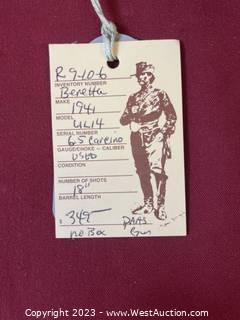 R 9-10-6
INVENTORY NUMBER
Beretta
MAKE
1941
MODEL
UL14
SERIAL NUMBER
6.5 Carcino
GAUGE/CHOKE - CALIBER
USED
CONDITION
NUMBER OF SHOTS
18"
BARREL LENGTH
$ 349-
no Box
PARTS
Gun
Copyright 2023 - www.WestAuction.com